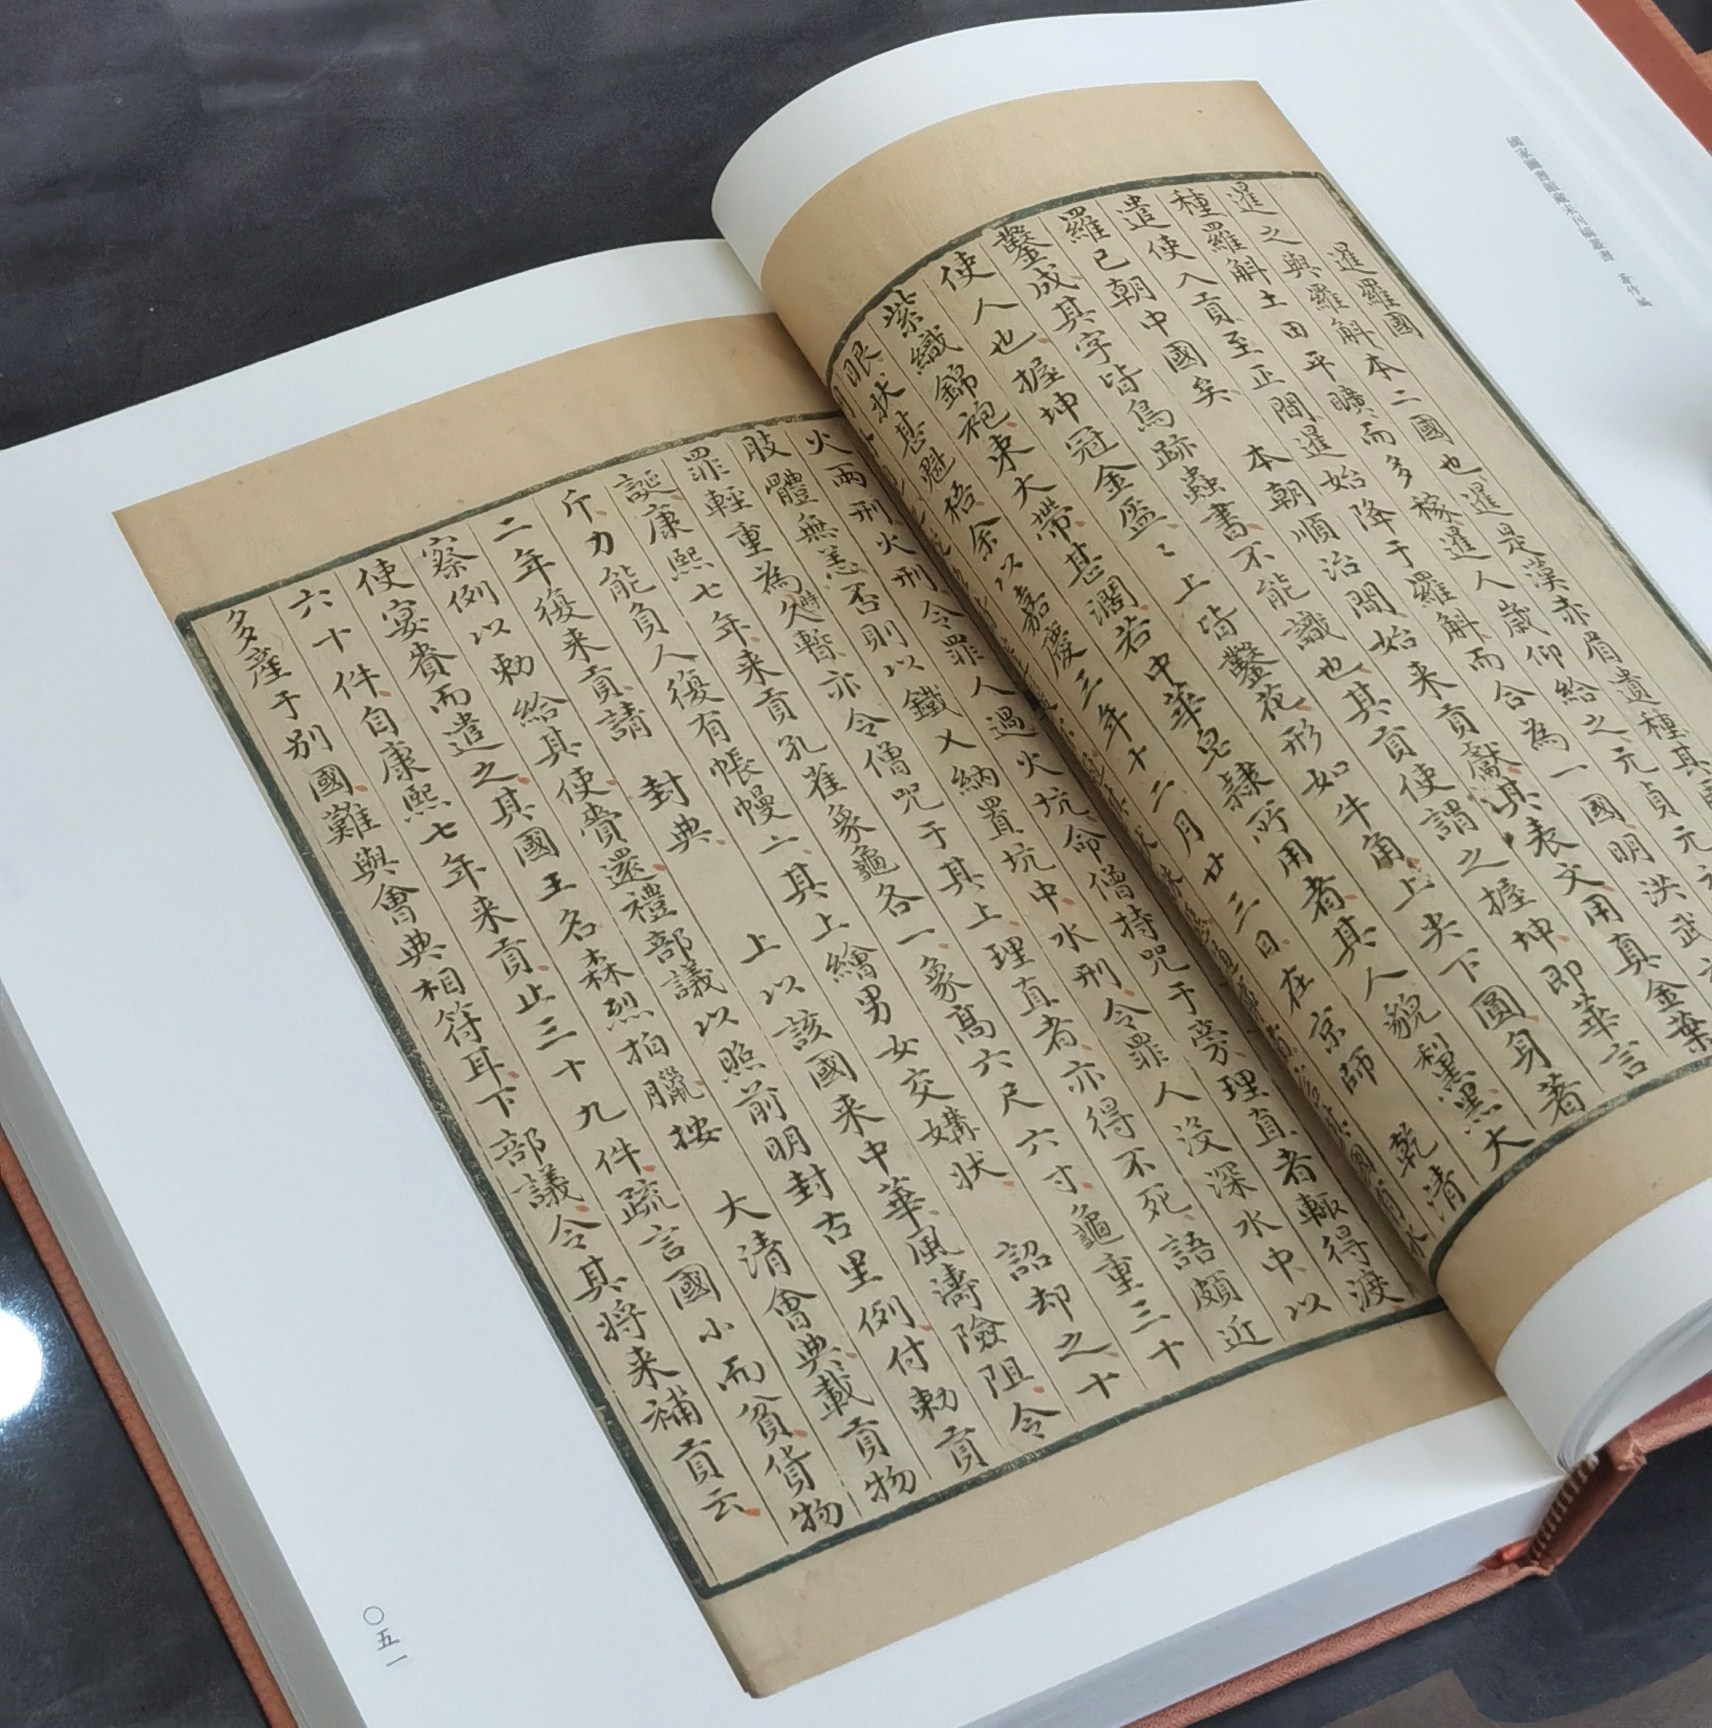 國家圖書館藏未刊稿叢書 著作編
暹羅國
暹之與羅斛本二國也暹是漢赤眉遺種其
種羅斛土田平曠而多稼暹人歲仰給之元貞元
遣使入貢至正間暹始降于羅斛而合為一國明洪武
羅已朝中國矣 本朝順治間始来貢獻其表文用真金葉
鑿成其字皆鳥跡蟲書不能識也其貢使謂之握坤即華言
使人也握坤冠金盔〻上皆鑿花形如牛角上尖下圓身著
紫織錦袍束大帶甚濶若中華皂隸所用者其人貌黧黑大
眼状甚魁梧余以嘉慶三年十二月廿三日在京師 乾清
火兩刑火刑令罪人過火坑命僧持咒于旁理直者輙得渡
肢體無恙否則以鐵乂納置坑中水刑令罪人沒深水中以
罪輕重為時久暫亦令僧咒于其上理直者亦得不死語頗近
誕康熙七年来貢孔雀象龜各一象高六尺六寸龜重三十
斤力能負人復有帳幔二其上繪男女交媾状 詔却之十
二年復来貢請 封典 上以該國来中華風濤險阻令
察例以勅給其使賷還禮部議以照前明封古里例付勅貢
使宴賚而遣之其國王名森烈拍臘按 大清會典載貢物
六十件自康熙七年来貢止三十九件疏言國小而貧貨物
多產于别國難與會典相符耳下部議令其将来補貢云
〇五一